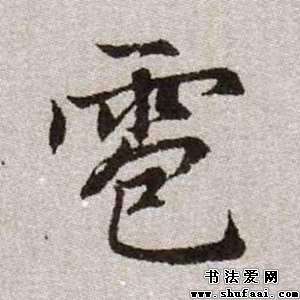 雹
书法爱网
www.shufaai.com